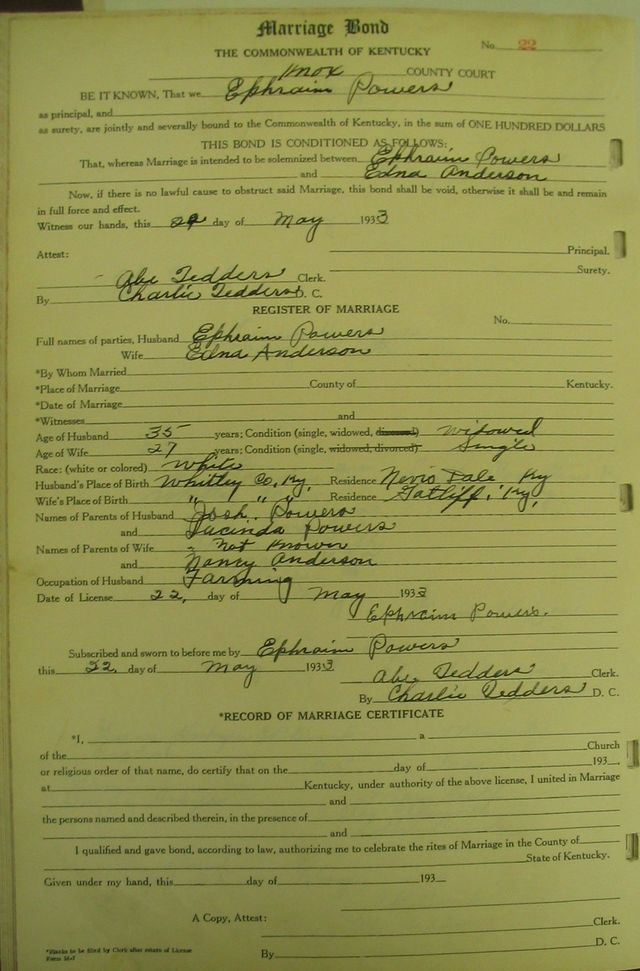 Marriage Bond
THE COMMONWEALTH OF KENTUCKY
No. 22
Knox COUNTY COURT
BE IT KNOWN, That we Ephraim Powers
as principal, and
as surety, are jointly and severally bound to the Commonwealth of Kentucky, in the sum of ONE HUNDRED DOLLARS
THIS BOND IS CONDITIONED AS FOLLOWS:
That, whereas Marriage is intended to be solemnized between Ephraim Powers
and Edna Anderson
Now, if there is no lawful cause to obstruct said Marriage, this bond shall be void, otherwise it shall be and remain
in full force and effect.
Witness our hands, this 22 day of May 1933
Attest: Principal.
Surety.
Abe Tedders Clerk.
By Charlie Tedders D. C.
REGISTER OF MARRIAGE
No.
Full names of parties, Husband Ephraim Powers
Wife Edna Anderson
*By Whom Married
*Place of Marriage County of Kentucky.
*Date of Marriage
*Witnesses and
Age of Husband 35 years; Condition (single, widowed, divorced) Widowed
Age of Wife 27 years; Condition (single, widowed, divorced) Single
Race: (white or colored) White
Husband's Place of Birth Whitley Co, Ky, Residence Nevis Dale Ky
Wife's Place of Birth " " " Residence Gatliff, Ky,
Names of Parents of Husband Josh Powers
and Lucinda Powers
Names of Parents of Wife Not Known
and Nancy Anderson
Occupation of Husband Farming
Date of License 22, day of May 1933
Ephraim Powers.
Subscribed and sworn to before me by Ephraim Powers
this 22 day of May 1933
Abe Tedders Clerk.
By Charlie Tedders D. C.
*RECORD OF MARRIAGE CERTIFICATE
*I, a
of the Church
or religious order of that name, do certify that on the day of 193 ,
at Kentucky, under authority of the above license, I united in Marriage
and
the persons named and described therein, in the presence of
and
I qualified and gave bond, according to law, authorizing me to celebrate the rites of Marriage in the County of
State of Kentucky.
Given under my hand, this day of 193
A Copy, Attest: Clerk.
By D. C.
*Blanks to be filled by Clerk after return of License